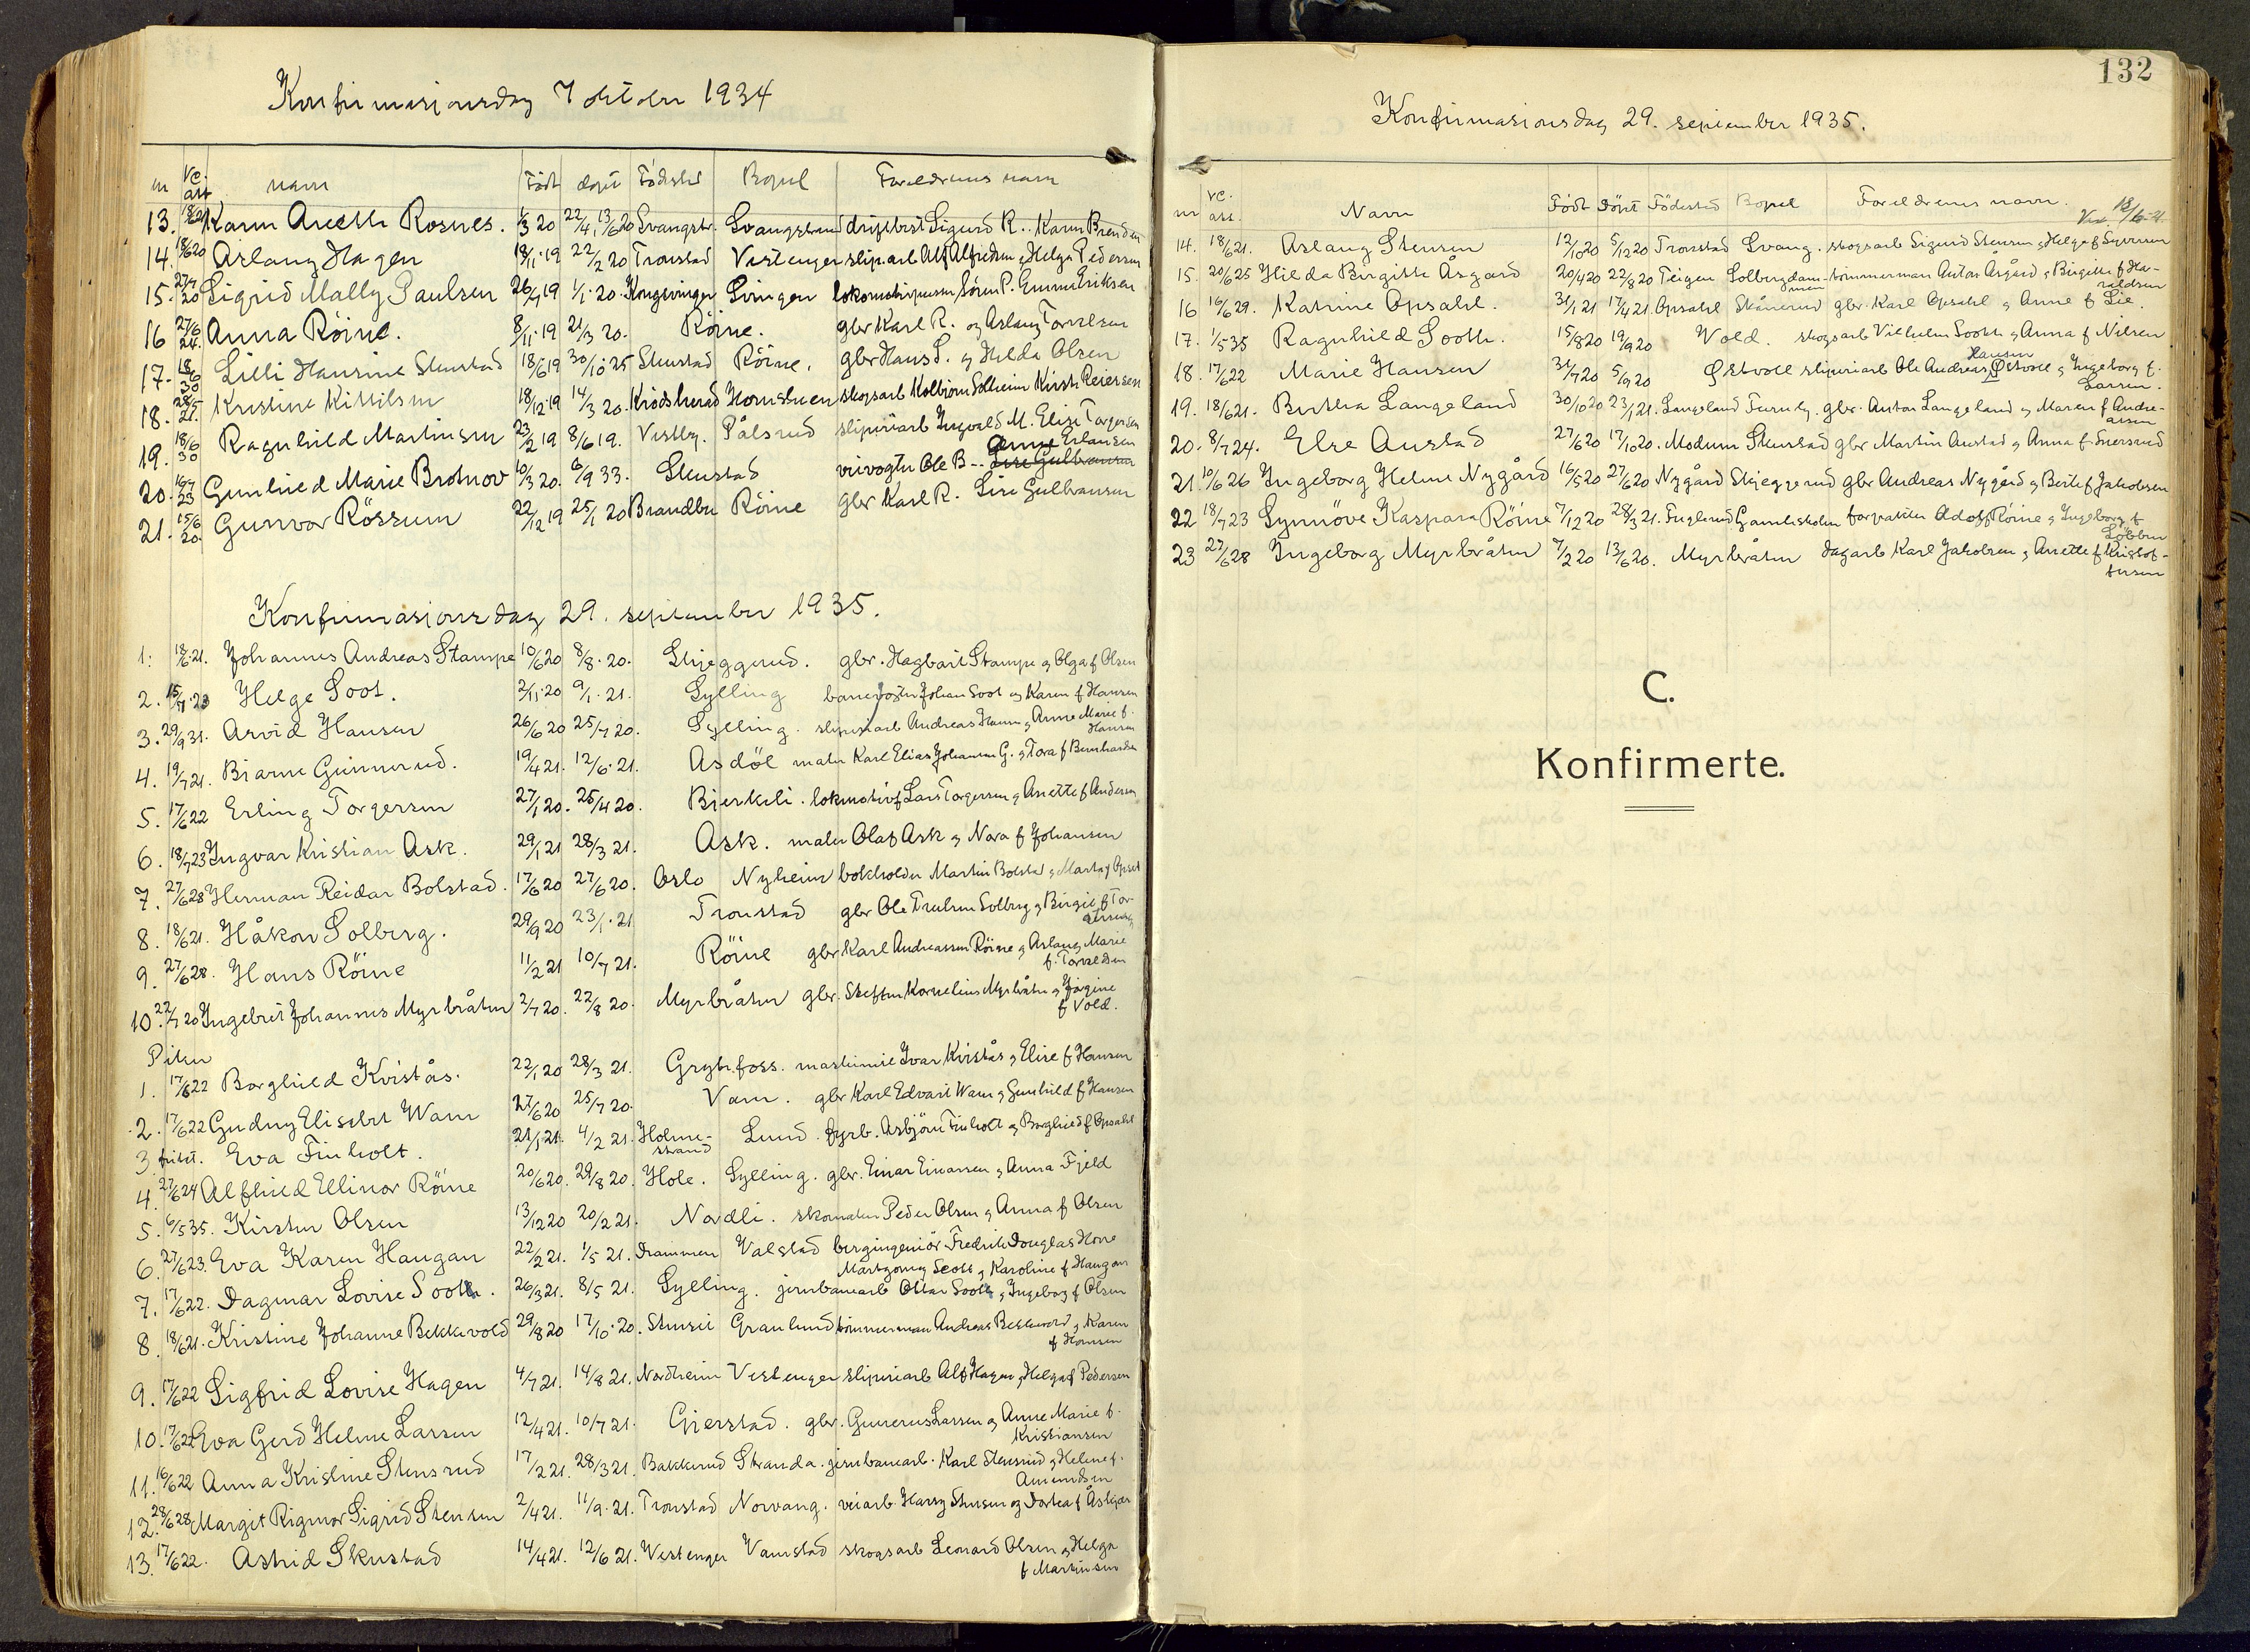 Konfirmasjonsdag 7 oktober 1934
nr vc. att navn Født døpt Fødsted Bopel Foreldrenes navn
13. 18/6 21 Karin Anette Rosnes. 1/3 20 22/4, 13/6 20 Svangstr. Svangstrand driftbest Sigurd R.. Karen Brenden
14. 18/6 20 Aslaug Hagen 18/11.19 22/2 20 Tronstad Vestenger slip.arb Alf Alfredsen & Helga Pedersen
15. 27/7 20 Sigrid Mally Paulsen 26/7 19 1/1.20. Kongsvinger Svingen lokomotivpusser Søren P. Emma Eriksen
16 27/6 24. Anna Röine. 8/11.19 21/3 20. Röine. gbr Karl R. og Aslaug Torvelsen
17. 18/6 30 Lilli Hansine Skustad 18/5 19 30/10 25 Skustad Röine. gbr Hans S. og Hilda Olsen
18. 28/5 21. Kristine Kittilsen 18/12.19 14/3 20. Krödsherad Hornsluen skogsarb Kolbjörn Solheim Kirsti Reiersen
19. 18/6 30 Ragnhild Martinsen 23/2 19 8/6 19. Vestby. Pålsrud sliperiarb Ingvald M. Elise Torgersen
20. 16/7 23 Gunhild Marie Brotnov 10/3 20. 6/9 33. Skustad veivogter Ole B-- Anne Erlansen Lise Gulbransen
21. 15/6 20. Gunvor Rössum 22/12 19 25/1 20 Brandbu Röine gbr Karl R. Lise Gulbransen
Konfirmasjonsdag 29. september 1935.
1. 18/6.21. Johannes Andreas Stampe 10/6 20 8/8.20. Skjeggerud. gbr. Hagbart Stampe og Olga f Olsen
2. 15/7.23 Helge Soot. 2/11.20 9/1.21. Sylling banevogter Johan Soot og Karen f Hansen
3. 29/9 31. Arvid Hansen 26/6 20 25/7 20. Sylling. sliperiarb Andreas Hansen og Anne Marie f. Hansen
4. 19/7 21. Bjarne Gunnerud. 19/4 21. 12/6.21. Asdöl maler Karl Elias Johansen G. og Tora f Bernhardsen
5. 17/6 22 Erling Torgersen 27/1 20. 25/4 20. Bjerkeli. lokomotivf Lars Torgersen og Anette f Andersen
6. 18/7 23 Ingvar Kristian Ask. 29/1 21 28/3 21. Ask. maler Olaf Ask og Nora f Johansen
7. 27/6 28 Herman Reidar Bolstad. 17/6 20 27/6 20. Oslo Nyheim bokholder Martin Bolstad og Marta f Opset
8. 18/6 21. Håkon Solberg. 29/9 20 23/1.21 Tronstad gbr Ole Truelsen Solberg og Birgit f Tor-
9. 27/6 28. Hans Röine 11/2 21 10/7 21. Röine gbr Karl Andreassen Röine og Aslaug Marie f. Torvelsen
10. 22/7 20 Ingebret Johannes Myrbråten 2/7 20. 22/8 20. Myrbråten gbr. Steffen Kornelius Myrbråten og Jörgine f Vold.
Piker
1. 17/6 22 Borghild Kvistås. 22/1 20 28/3 21. Grytefoss. maskinmie Ivar Kvistås og Elise f Hansen
2. 17/6 22 Gudny Elisebet Wam 27/6 20 25/7 20. Vam. gbr Karl Edvart Wam og Gunhild f Hansen
3. friket. Eva Finholt. 21/1 21. 4/2 21. Holme-strand Lund. fyrb. Asbjörn Finholt og Borghild f Opsahl
4. 27/6 24 Alfhild Ellinor Röine 20/6 20. 29/8 20. Hole. Sylling. gbr. Einar Einarsen og Anna Fjeld
5. 6/5 35. Kirsten Olsen 13/12 20 20/2 21. Nordli. skomaker Peder Olsen og Anna f Olsen
6. 27/6 23. Eva Karen Haugan 22/2 21. 1/5 21. Drammen Valstad bergingeniör Fredrik Douglas Hore Martgomy Scott og Karoline f Haugan
7. 17/6 22. Dagmar Lovise Sooth. 26/3 21. 8/5 21. Sylling. jernbanearb Ottar Sooth og Ingeborg f Olsen
8. 18/6 21. Kristine Johanne Bekkevold 29/8 20 17/10.20. Stensei Granlund tömmerman Andreas Bekkevold og Karen f Hansen
9. 17/6 22 Sigfrid Lovise Hagen 4/7 21. 14/8 21. Nordheim Vestenger sliperiarb Alf Hagen og Helga f Pedersen
10. 17/6 22 Eva Gerd Helene Larsen 12/4 21. 10/7 21. Gjerstad. gbr. Gunerius Larsen og Anne Marie f. Kristiansen
11. 16/6 22 Anna Kristine Stensrud 17/2 21. 28/3 21. Bakkerud Stranda. jernbanearb. Karl Stensrud og Helene f. Amundsen
12. 28/6 28 Margit Rigmor Sigrid Stensen 2/4 21. 11/9.21. Tronstad Norvang. veiarb. Harry Stensen og Dortea f Åskjær
13. 17/6 22. Astrid Skustad 14/4 21. 12/6 21. Vestenger Vamstad skogsarb Leonard Olsen og Helga f Martinsen
132
Konfirmasjonsdag 29. september 1935.
nr vc. att. Navn Födt Döpt Födested Bopel Foreldrenes navn.
18/6.21.
14. 18/6 21. Aslaug Stensen 12/10 20 5/12 20 Tronstad Svang. skogsarb Sigurd Stensen og Helga f Syversen
15. 20/6 25 Hilda Birgitte Åsgård 20/4 20 22/8 20 Teigen Solbergdammen tömmerman Anton Åsgård og Birgitte f Ha-raldsen
16 16/6 29. Katrine Opsahl. 31/1 21 17/4 21. Opsahl Skånerud gbr. Karl Opsahl og Anne f Lie.
17. 1/5 35 Ragnhild Sooth. 15/8 20 19/9 20 Vold. skogsarb Vilhelm Sooth og Anna f Nilsen
18. 17/6 22 Marie Hansen 31/7 20 5/9 20 Østvoll sliperiarb Ole Andreas Hansen Østvoll og Ingeborg f. Larsen.
19. 18/6 21. Bertha Langeland 30/10 20 23/1 21. Langeland Furuly. gbr. Anton Langeland og Maren f Andre-assen
20. 8/7 24. Else Austad 27/6 20 17/10 20. Modum Skustad gbr Martin Austad og Anna f Snersrud
21. 10/6 26 Ingeborg Helene Nygård 16/5 20 27/6 20 Nygård Skjeggerud gbr Andreas Nygård og Berte f Jakobsen
22 18/7 23 Synnöve Kaspara Röine 7/12 20 28/3 21. Fuglerud Gamleskolen forpakter Adolf Röine og Ingeborg f Löbben
23 27/6 28 Ingeborg Myrbråten 7/2 20 13/6 20. Myrbråten dagarb Karl Jakobsen og Anette f Kristof-fersen
C.
Konfirmerte.